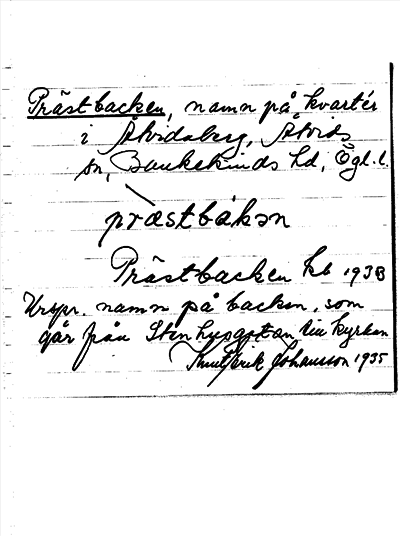 Prästbacken, namn på kvartér
i Åtvidaberg, Åtvids
sn, Bankekinds hd, Ögl.
præstbákən
Prästbacken kb 1938
Urspr. namn på backen, som
går från Stenhusgatan till kyrkan
Knut Erik Johansson 1935